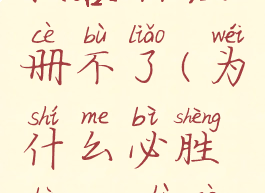 cè bù liǎo wéi
册不了(为
shí me bì shèng
什么必胜